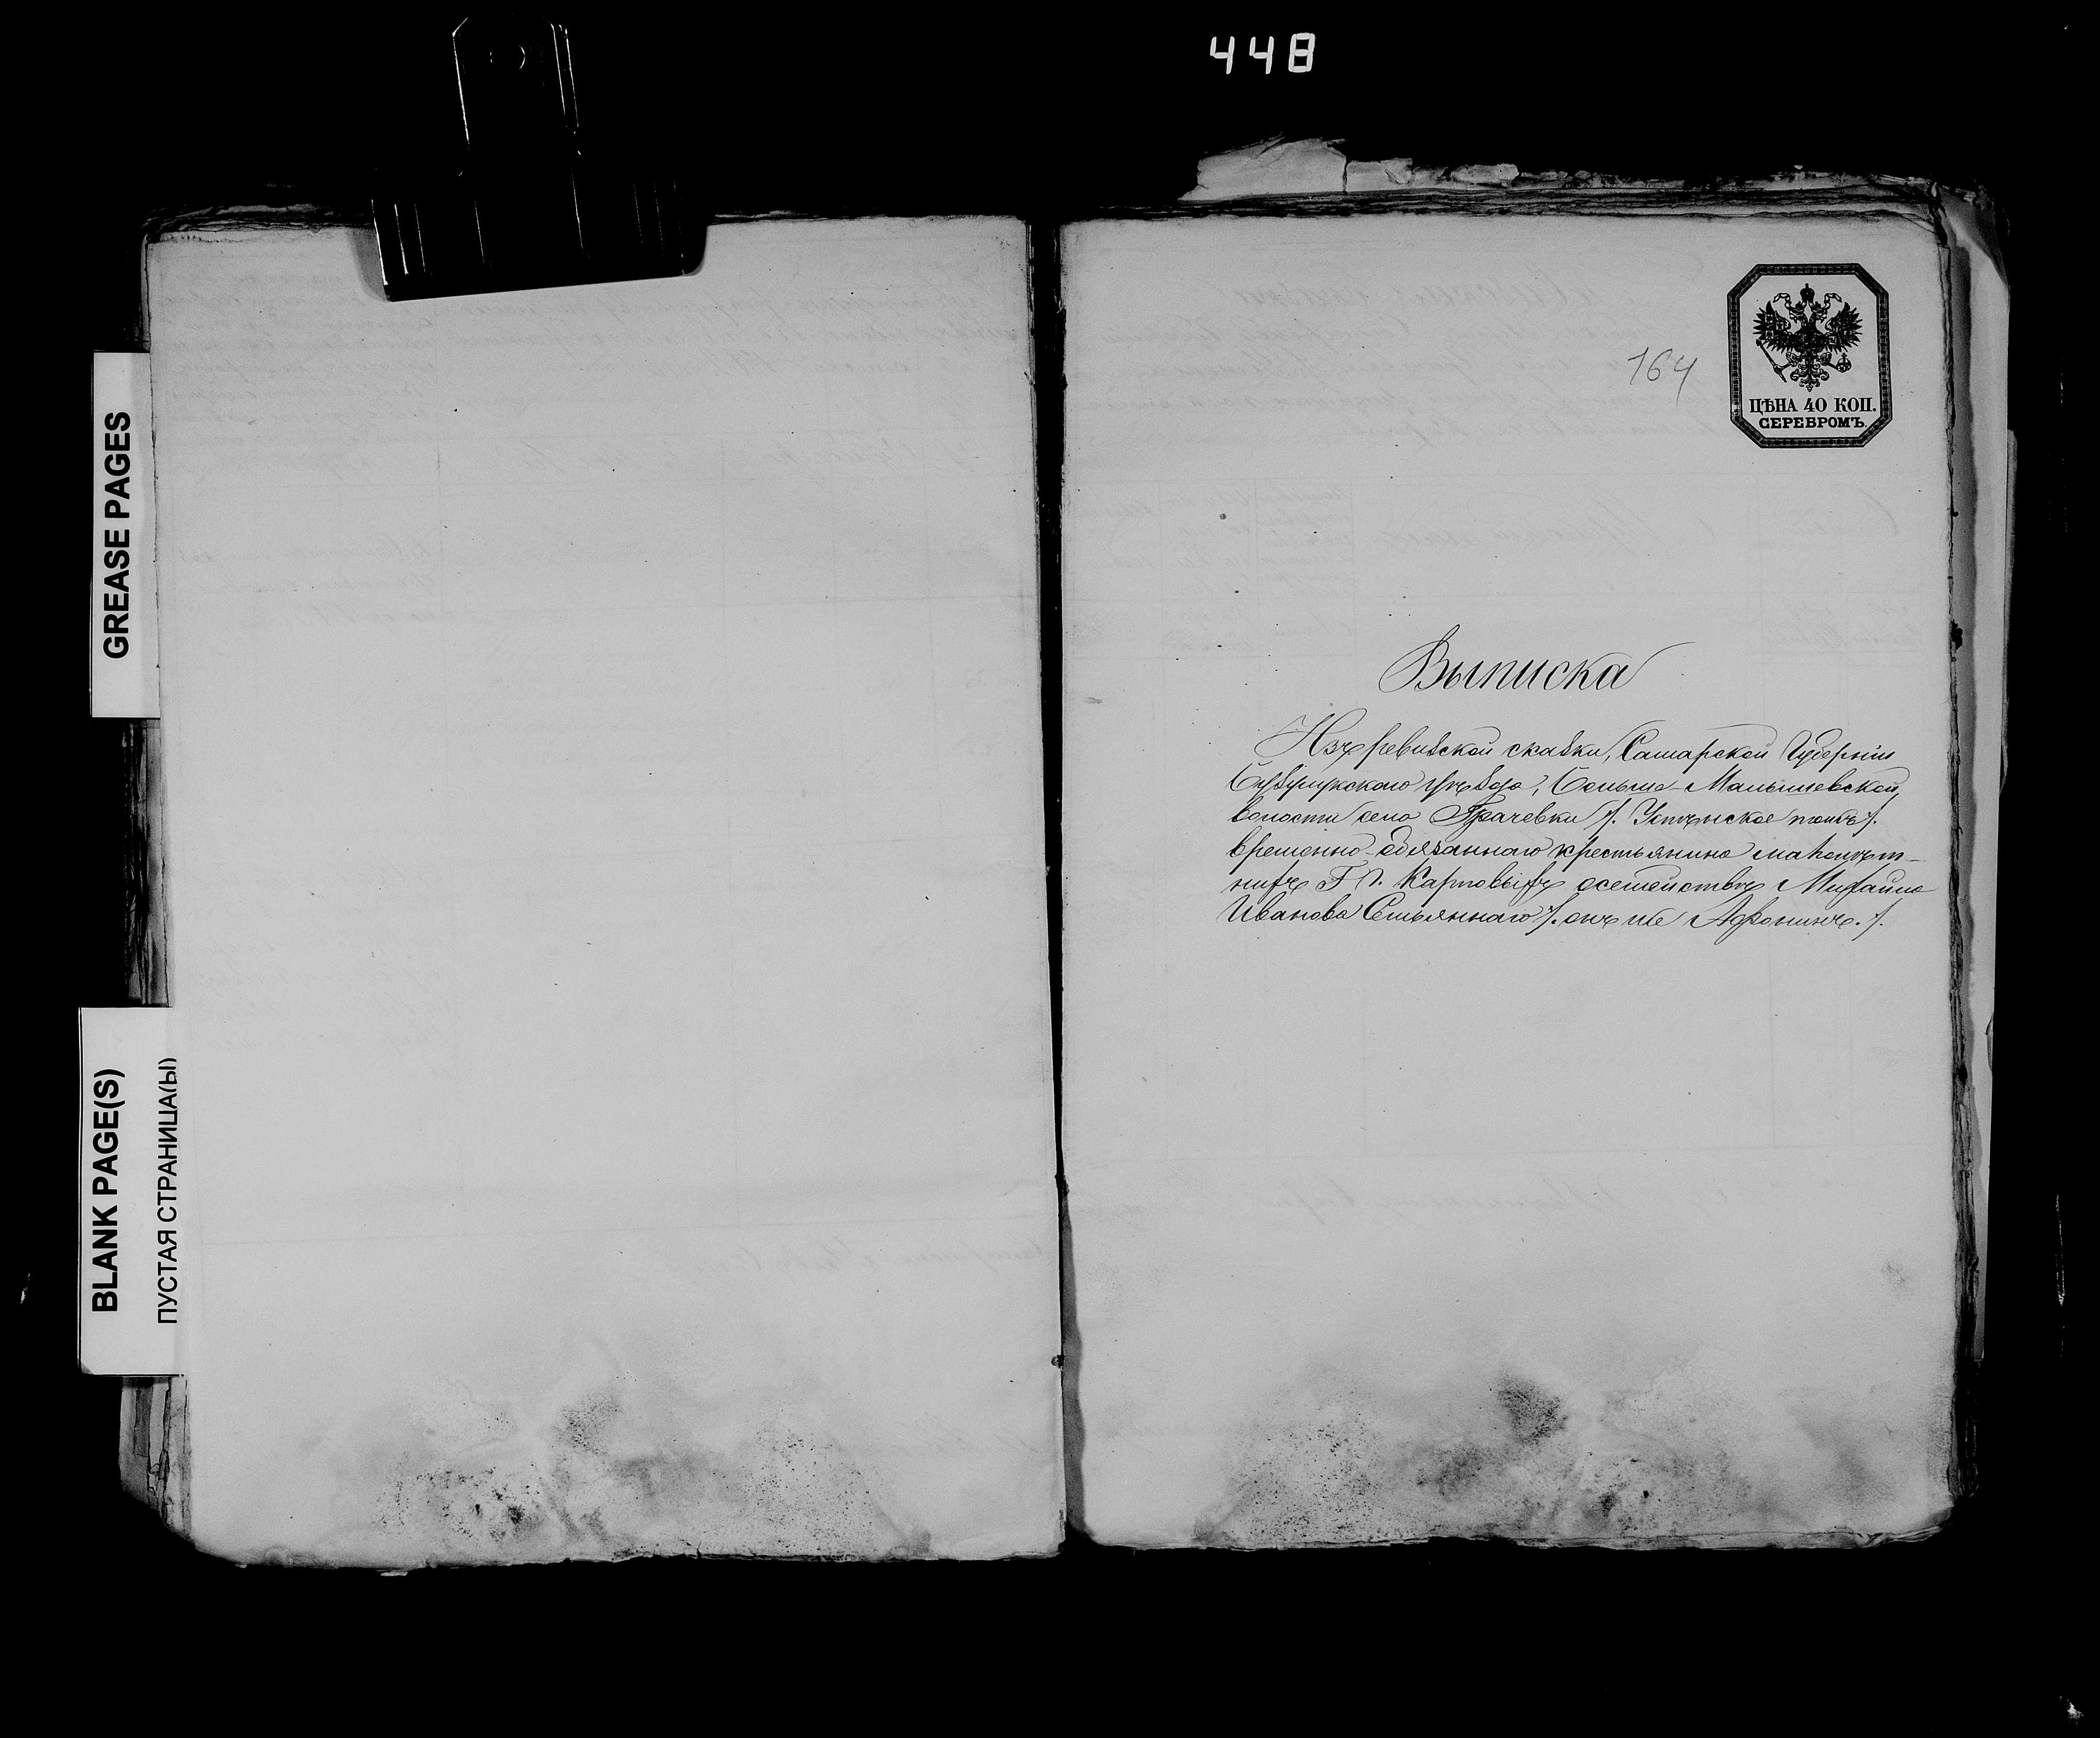 448
GREASE PAGES
BLANK PAGE(S)
ПУСТАЯ СТРАНИЦА(Ы)
164
ЦѢНА 40 КОП.
СЕРЕБРОМЪ.
Выписка
Изъ ревизской сказки, Самарской Губерніи
Бузулукскаго уѣзда, Больше-Малышевской
волости села Грачевки /. Успенское тожъ /.
временно-обязаннаго крестьянина малолѣт-
нихъ Г. П. Карповыхъ о семействѣ Михайла
Иванова Емьяннаго /. онъ же Афонинъ. /.